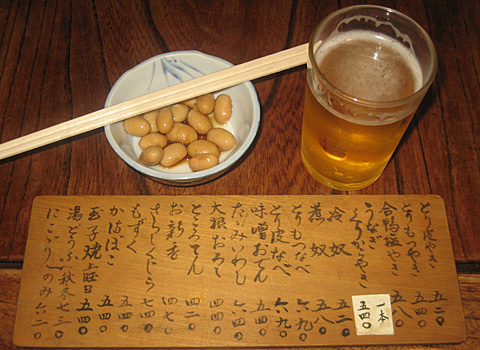 とり皮やき 五二〇
とりもつやき 五八〇
合鴨塩やき
うなぎくりからやき 一本 五四〇
冷奴 五二〇
煮奴 五八〇
とりもつなべ 六九〇
とり皮なべ 六九〇
味噌おでん
たたみいわし 五四〇
大根おろし
ところてん 四二〇
お新香 四七〇
さらしくじら 七四〇
もずく 五四〇
かまぼこ 五四〇
玉子焼 土曜日 五四〇
湯どうふ 秋冬 七三〇
にこごり 冬のみ 六二〇